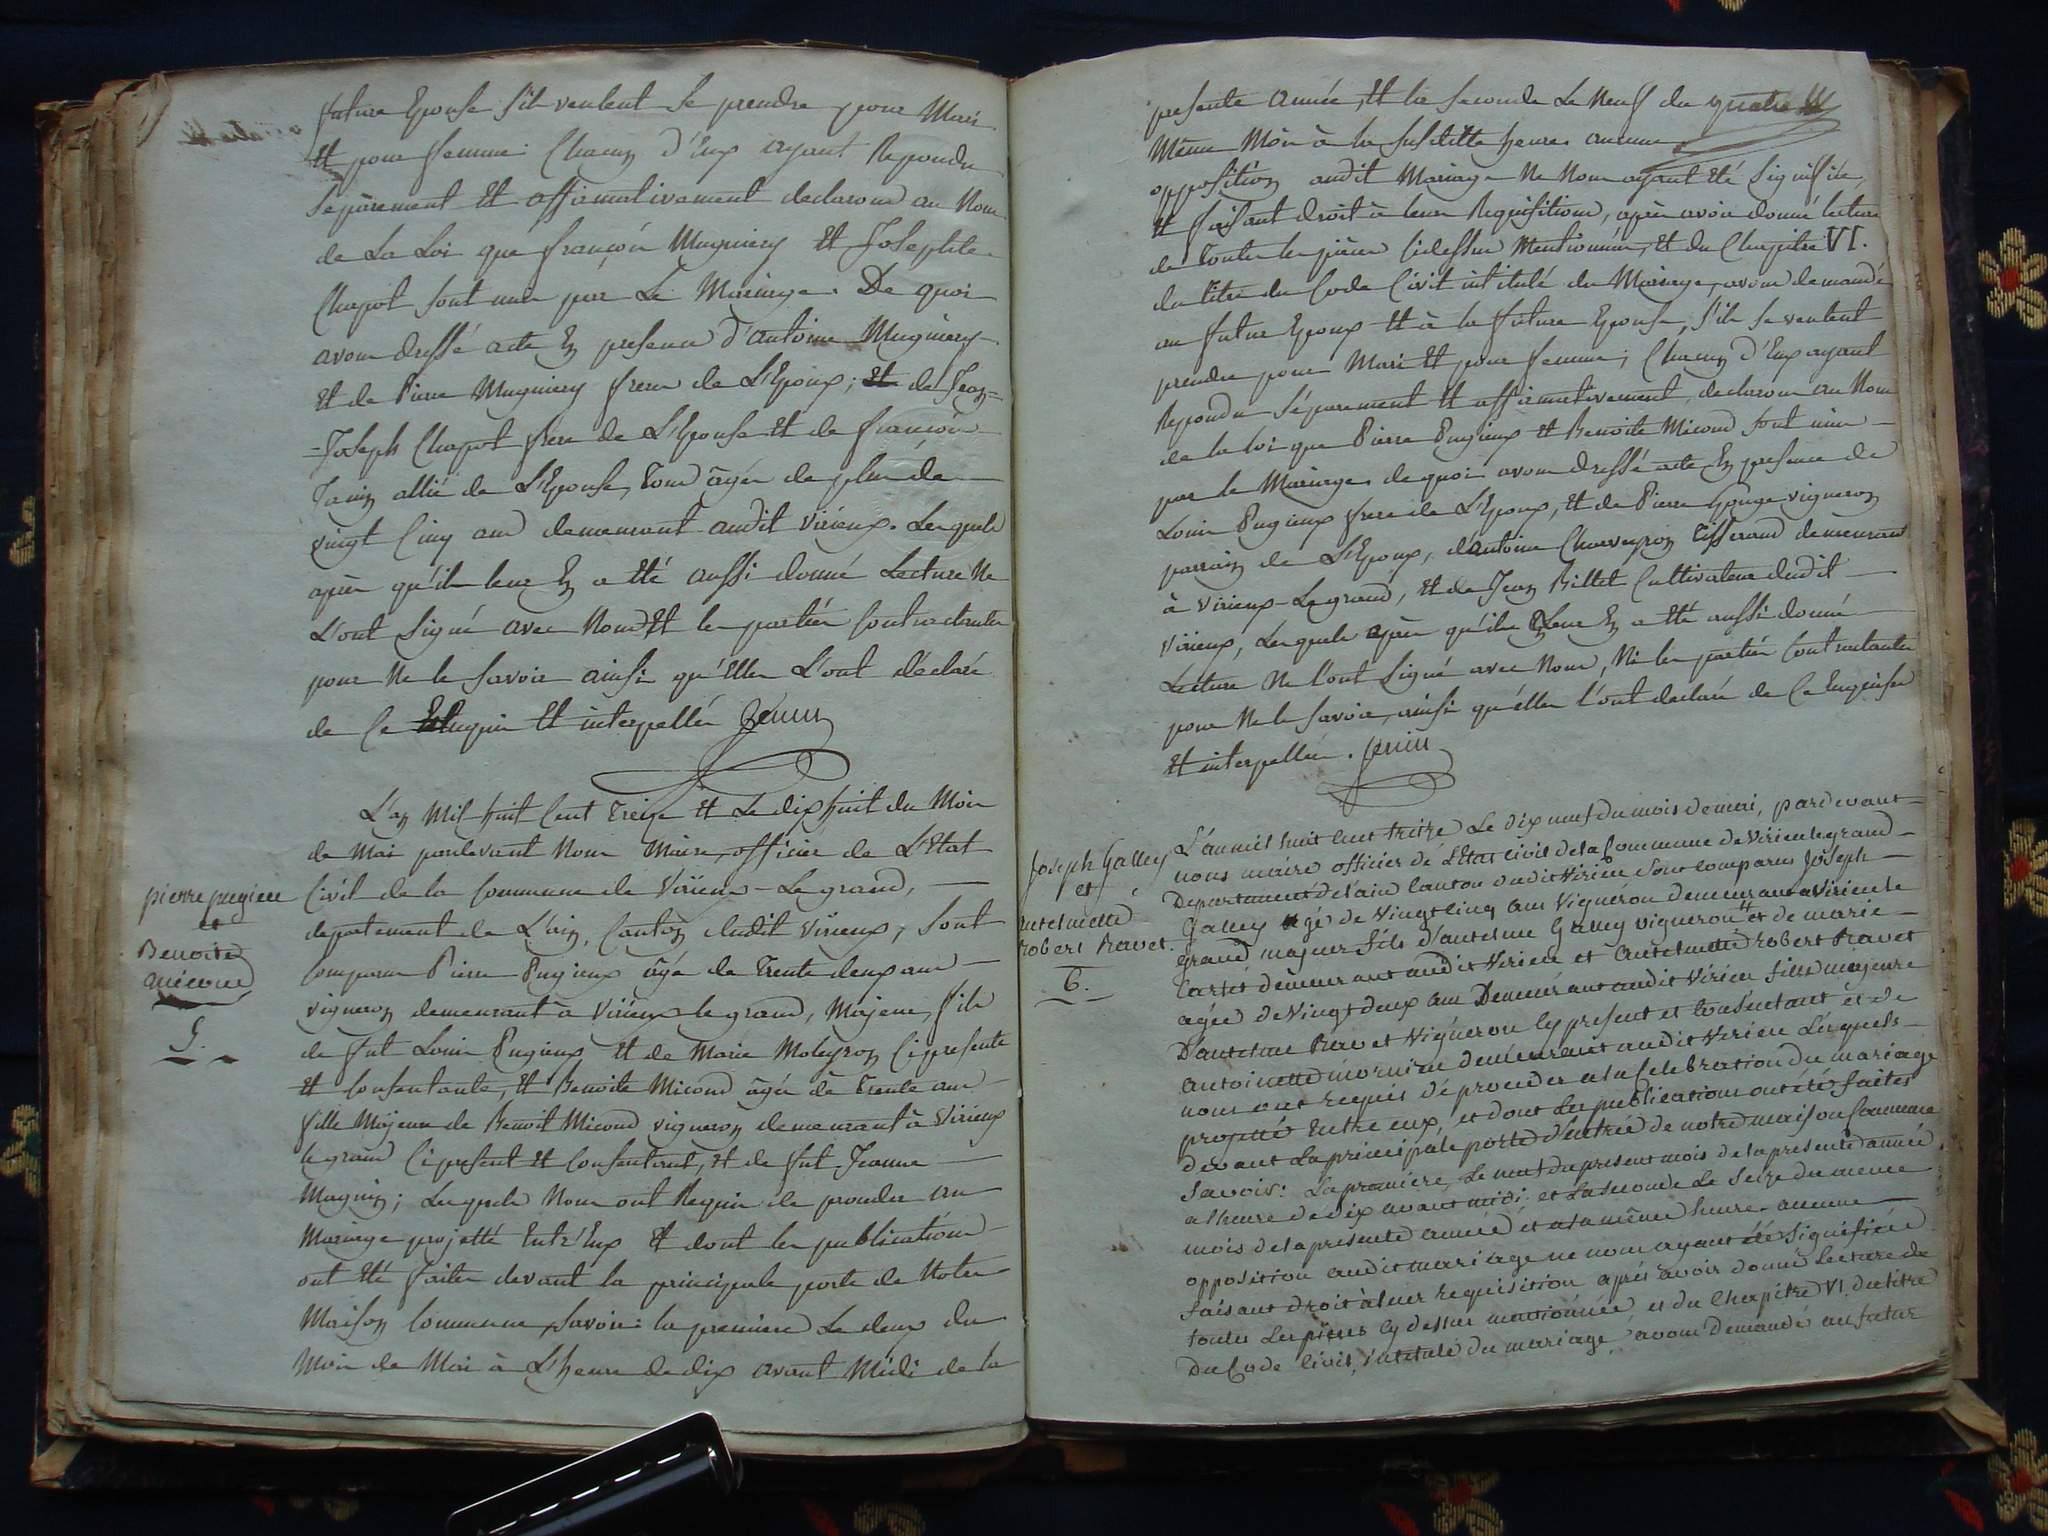 future Epouse s'ils veulent se prendre pour Mari
Et pour femme. Chacun d'Eux ayant Repondu
séparement Et affirmativement declarons au Nom
de La Loi que françois Mugniery Et Josephte
Chapot sont unis par Le Mariage. De quoi
avons dressé acte En presence d'antoine Mugniery
Et de Pierre Mugniery frere de L'Epoux; Et de Jean=
=Joseph Chapot frere de L'Epouse Et de françois
Janin allié de L'Epouse, tous âgés de plus de
vingt Cinq ans demeurant audit virieux. Lesquels
après qu'il leur En a Eté aussi donné Lecture Ne
L'ont signé avec Nous Et les partiés Contractantes
pour Ne le savoir ainsi qu'Elles L'ont déclaré
de Ce Enquis Et interpellés Jenin
L'an Mil huit Cent Treize Et Le dix huit du Mois
de Mai pardevant Nous Maire, officier de L'Etat
Civil de la Commune de Virieux-Le grand,
departement de L'ain, Canton dudit virieux, sont
Comparus Pierre Pugieux âgé de Trente deux ans
vigneron demeurant à Virieux le grand, Majeur, fils
de fut Louis Pugieux Et de Marie Moleyron Ci presente
Et Consentante, Et Benoite Micoud âgée de Trente ans
fille Majeure de Benoit Micoud vigneron demeurant à Virieux
le grand Ci present Et Consentant, Et de fut Jeanne
Magnin; Lesquels Nous ont Requis de proceder au
Mariage projetté Entr'Eux Et dont les publications
ont Eté faites devant la principale porte de Notre
Maison Commune, savoir: la premiere Le deux du
Mois de Mai à L'heure de dix avant Midi de la
pierre pugieux
et
Benoite
micoud
5.
presente année, Et la seconde Le Neuf du
Même Mois à la susditte heure. aucune
opposition audit Mariage Ne Nous ayant Eté signifiée,
Et faisant droit à leurs Requisitions, après avoir donné lecture
de Toutes les pièces Cidessus Mentionnées, Et du Chapitre VI.
du titre du Code Civil intitulé du Mariage, avons demandé
au futur Epoux Et à la future Epouse, s'ils se veulent
prendre pour Mari Et pour femme; Chacun d'Eux ayant
Repondu séparement Et affirmativement, declarons au Nom
de la Loi que Pierre Pugieux Et Benoite Micoud sont unis
par le Mariage. de quoi avons dressé acte En presence de
Louis Pugieux frere de L'Epoux, Et de Pierre vigneron
parrain de L'Epoux, d'antoine Charveyron Tisserand demeurant
à Virieux-Legrand, Et de Jean Billet Cultivateur dudit
Virieux, Lesquels après qu'il Leur En a Eté aussi donné
Lecture Ne l'ont signé avec Nous, Ni les partiés Contractantes
pour Ne le savoir, ainsi qu'elles l'ont declaré de Ce Enquises
Et interpellées. Jenin
L'an mil huit cent treize Le dix neuf du mois de mai, pardevant
nous maire officier de L'Etat civil de la Commune de Virieu legrand
Departement de l'ain Canton dudit Virieu sont comparus Joseph
Galley agé de Vingt cinq ans Vigneron demeurant a Virieu le
grand majeur fils d'antelme Galley vigneron et de marie
Cartet demeurant audit Virieu et antelmette robert Ravet
agée de Vingt deux ans Demeurant audit Virieu fille majeure
D'antelme Ravet Vigneron Cy present et Consentant et de
antoinette mornieu demeurant audit Virieu Lesquels
nous ont requis de proceder a la Celebration du mariage
projetté Entre eux, et dont Les publications ont été faites
devant La principale porte d'entrée de notre maison Commune
Savoir: La premiere, Le neuf du present mois de la presente année
a lheure de dix avant midi et La seconde Le Seize du meme
mois de la presente année et a la même heure. aucune
opposition audit mariage ne nous ayant été Signifiée
faisant droit à leur requisition après avoir donné Lecture de
toutes Les pieces Cy dessus mentionnée et du Chapitre VI. du titre
Du Code Civil, intitulé du mariage avons demandé au futur
Joseph Galley
et
antelmette
robert Ravet.
6.